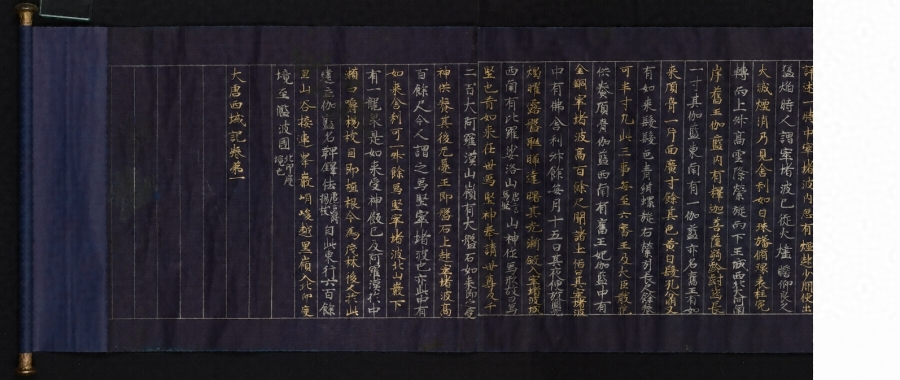 詳述一時中窣堵波內忽有煙起少間便出
猛焰時人謂窣堵波已從火燼瞻仰良久
火滅煙消乃見舍利如白珠璠循環表柱宛
轉而上昇高雲際縈旋而下王城西北大河南
岸舊王伽藍內有釋迦菩薩弱齡齔齒長餘
一寸其伽藍東南有一伽藍亦名舊王有如
來頂骨一片面廣寸餘其色黃白髮孔分明又
有如來髮髮色青紺螺旋右縈引長尺餘卷
可半寸凡此三事每至六齋王及大臣散花
供養頂骨伽藍西南有舊王妃伽藍中有
金銅窣堵波高百餘尺聞諸土俗曰其窣堵波
中有佛舍利升餘每月十五日其夜便放圓光
燭曜露盤聯暉達曙其光漸斂入窣堵波城
西南有比羅娑洛山唐言象堅山神作為形故曰為
堅也昔如來在世為堅神奉請世尊及千
二百大阿羅漢山嶺有大盤石如來即之受
神供養其後無憂王即盤石上起窣堵波高
百餘尺今人謂之為堅窣堵波也亦云中有
如來舍利可一升餘為堅窣堵波北山巖下
有一龍泉是如來受神飯已及阿羅漢於中
漱口嚼楊枝因即種根今為茂林後人於此
建立伽藍名鞞鐸佉唐言嚼楊枝自此東行六百餘
里山谷接連峯巖峭峻越黑嶺入北印度
境至濫波國北印度境也
大唐西域記卷第一